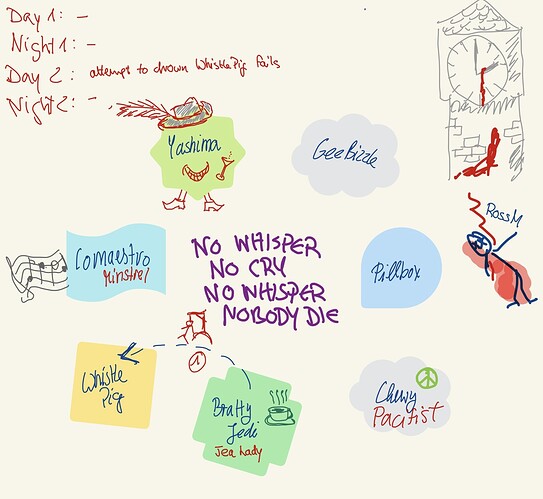 Day 1: -
Night 1: -
Day 2: attempt to drown WhistlePig fails
Night 2: -
Yashima
GeeBizzle
RossM
Comaestro
Minstrel
NO WHISPER
NO CRY
NO WHISPER
NOBODY DIE
Pillbox
1
Whistle
Pig
Bratty
Jedi
Tea Lady
Chewy
Pacifist